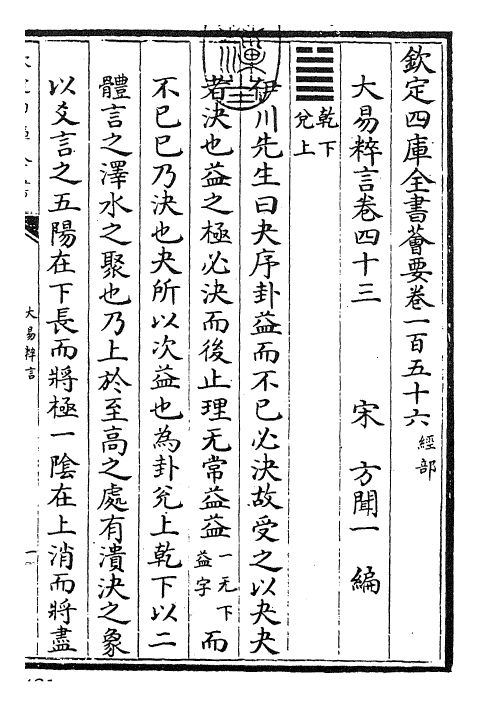 欽定四庫全書薈要卷一百五十六 經部
大易粹言卷四十三 宋 方聞一 編
乾下
兌上
伊川先生曰夬序卦益而不已必決故受之以夬夬
者決也益之極必決而後止理无常益益 一无下益字 而
不已已乃決也夬所以次益也為卦兌上乾下以二
體言之澤水之聚也乃上於至高之處有潰決之象
以爻言之五陽在下長而將極一陰在上消而將盡
大易粹言
一